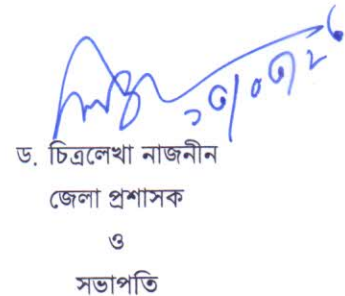 ড. চিত্রলেখা নাজনীন
জেলা প্রশাসক
ও
সভাপতি